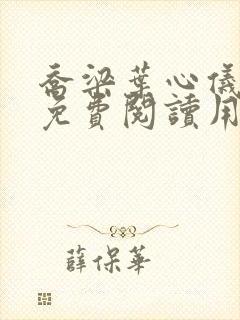 喬梁葉心儀
免費閱讀用
薛保華